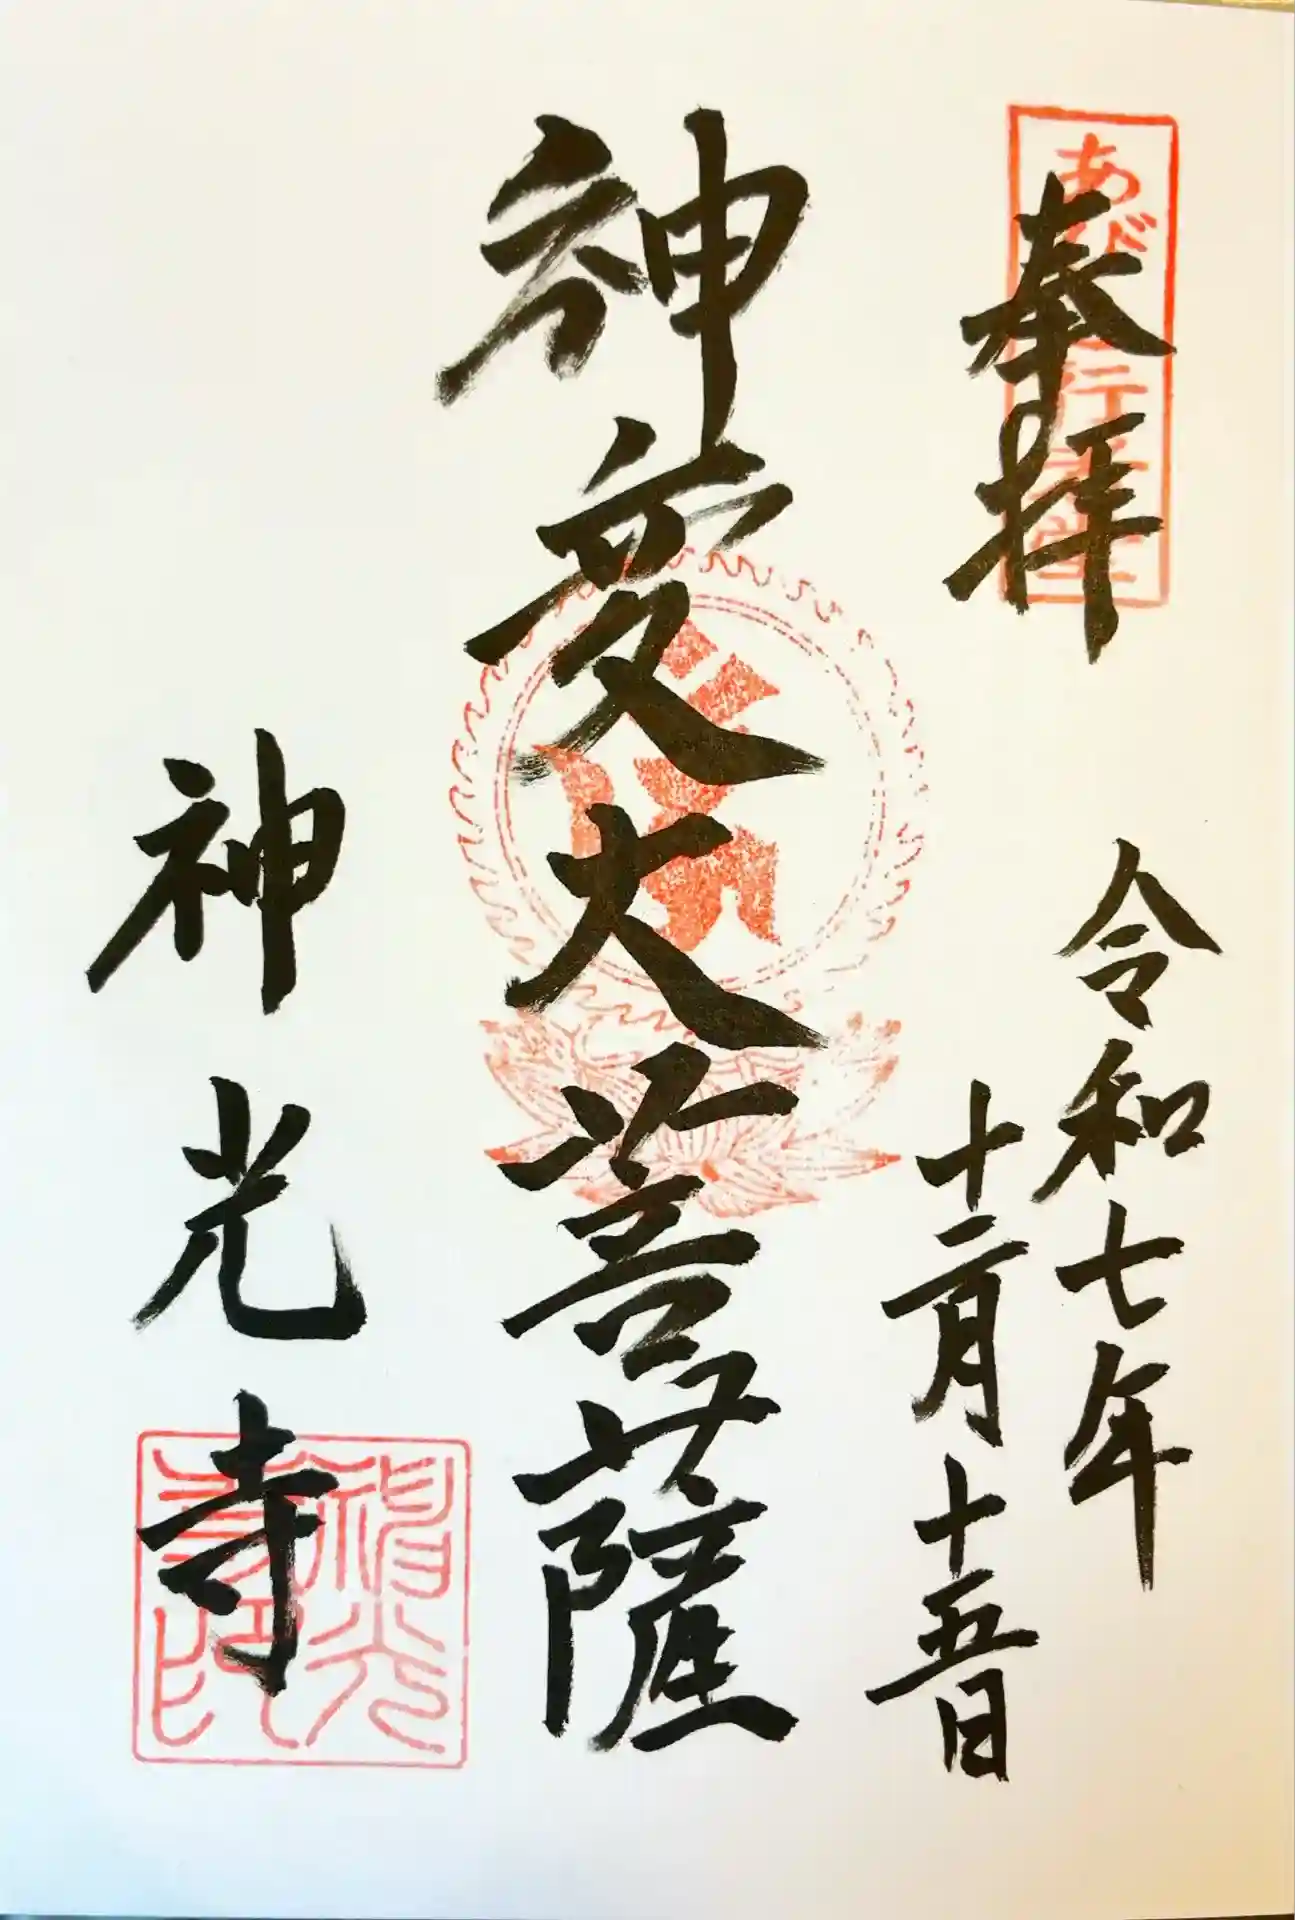 あびこ行者堂
奉拝
令和七年
十二月十五日
神変大菩薩
神光寺
神光寺印